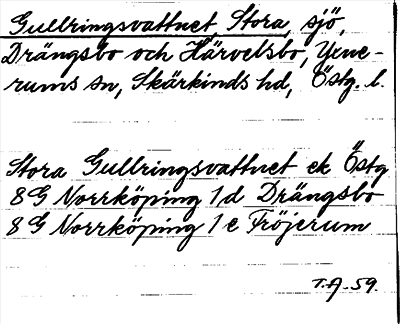 Gullringsvattnet, Stora, sjö,
Drängsbo och Härvelsbo, Yxne-
rums sn, Skärkinds hd, Östg. l.
Stora Gullringsvattnet ek Östg
8G Norrköping 1d Drängsbo
8G Norrköping 1e Fröjerum
T.A. 59.